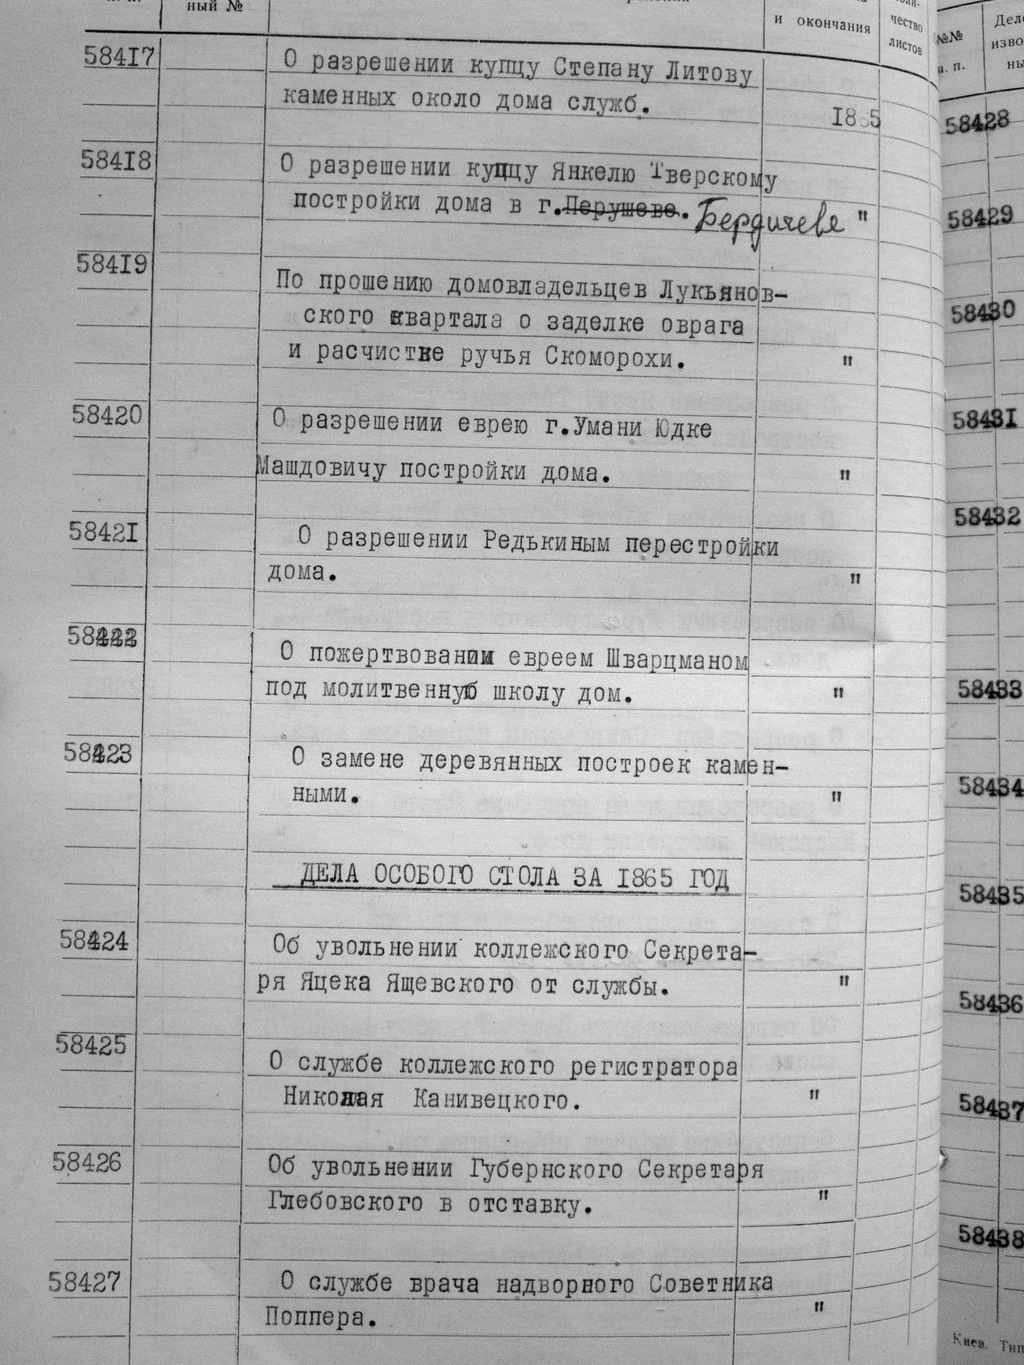 ный №
и окончания
чество
листов
58417 О разрешении купцу Степану Литову
каменных около дома служб. 1865
58418 О разрешении купцу Янкелю Тверскому
постройки дома в г. Перушеве. Бердичеве "
58419 По прошению домовладельцев Лукьянов-
ского квартала о заделке оврага
и расчистке ручья Скоморохи. "
58420 О разрешении еврею г.Умани Юдке
Машдовичу постройки дома. "
58421 О разрешении Редькиным перестройки
дома. "
58422 О пожертвовании евреем Шварцманом
под молитвенную школу дом. "
58423 О замене деревянных построек камен-
ными. "
ДЕЛА ОСОБОГО СТОЛА ЗА 1865 ГОД
58424 Об увольнении коллежского Секрета-
ря Яцека Ящевского от службы. "
58425 О службе коллежского регистратора
Николая Канивецкого. "
58426 Об увольнении Губернского Секретаря
Глебовского в отставку. "
58427 О службе врача надворного Советника
Поппера. "
№№
п. п.
Дел
изво
ны
58428
58429
58430
58431
58432
58433
58434
58435
58436
58437
58438
Киев. Тип